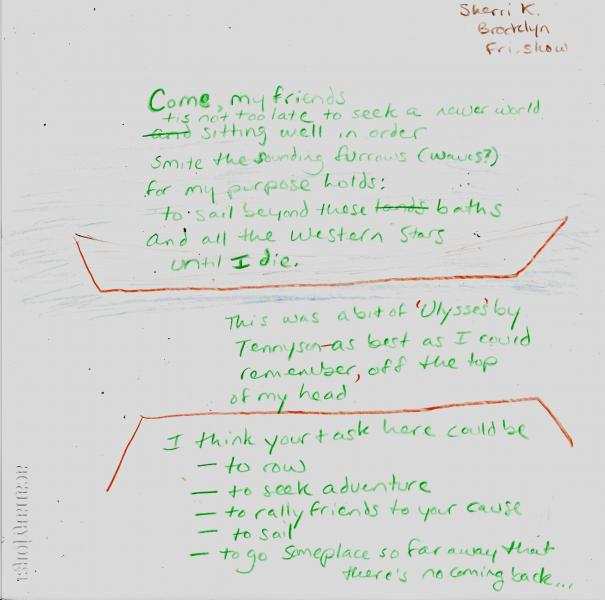 Sherri K.
Brooklyn
Fri. show
Come, my friends
tis not too late to seek a newer world
and sitting well in order
smite the sounding furrows (waves?)
for my purpose holds:
to sail beyond these lands baths
and all the western stars
until I die.
This was a bit of 'Ulysses' by
Tennyson—as best as I could
remember, off the top
of my head
I think your task here could be
— to row
— to seek adventure
— to rally friends to your cause
— to sail
— to go someplace so far away that
there's no coming back...